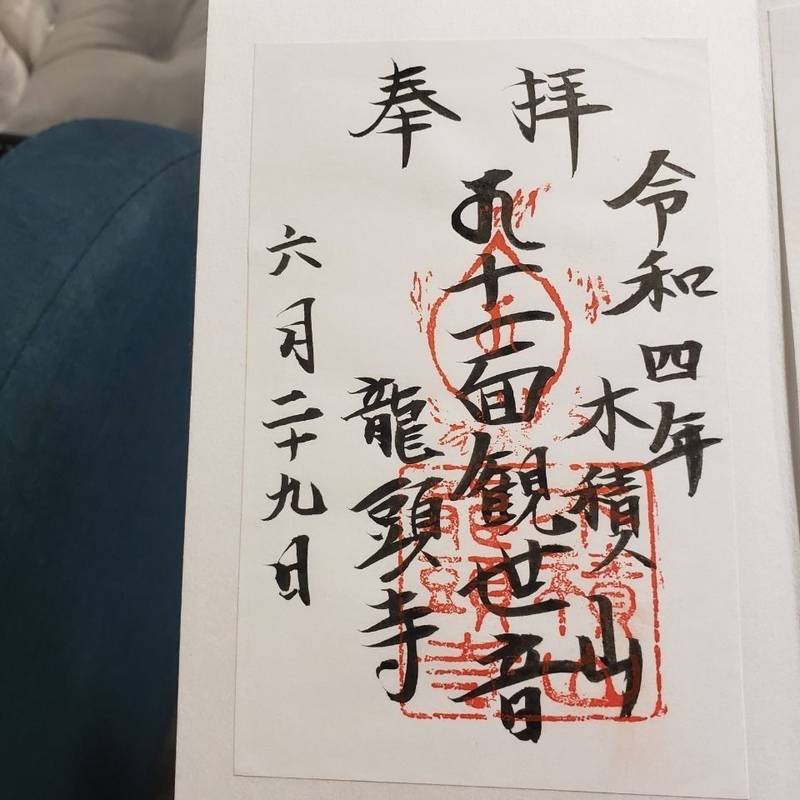 奉拝
令和四年
木積山
十一面観世音
龍頭寺
六月二十九日
木積山
龍頭寺